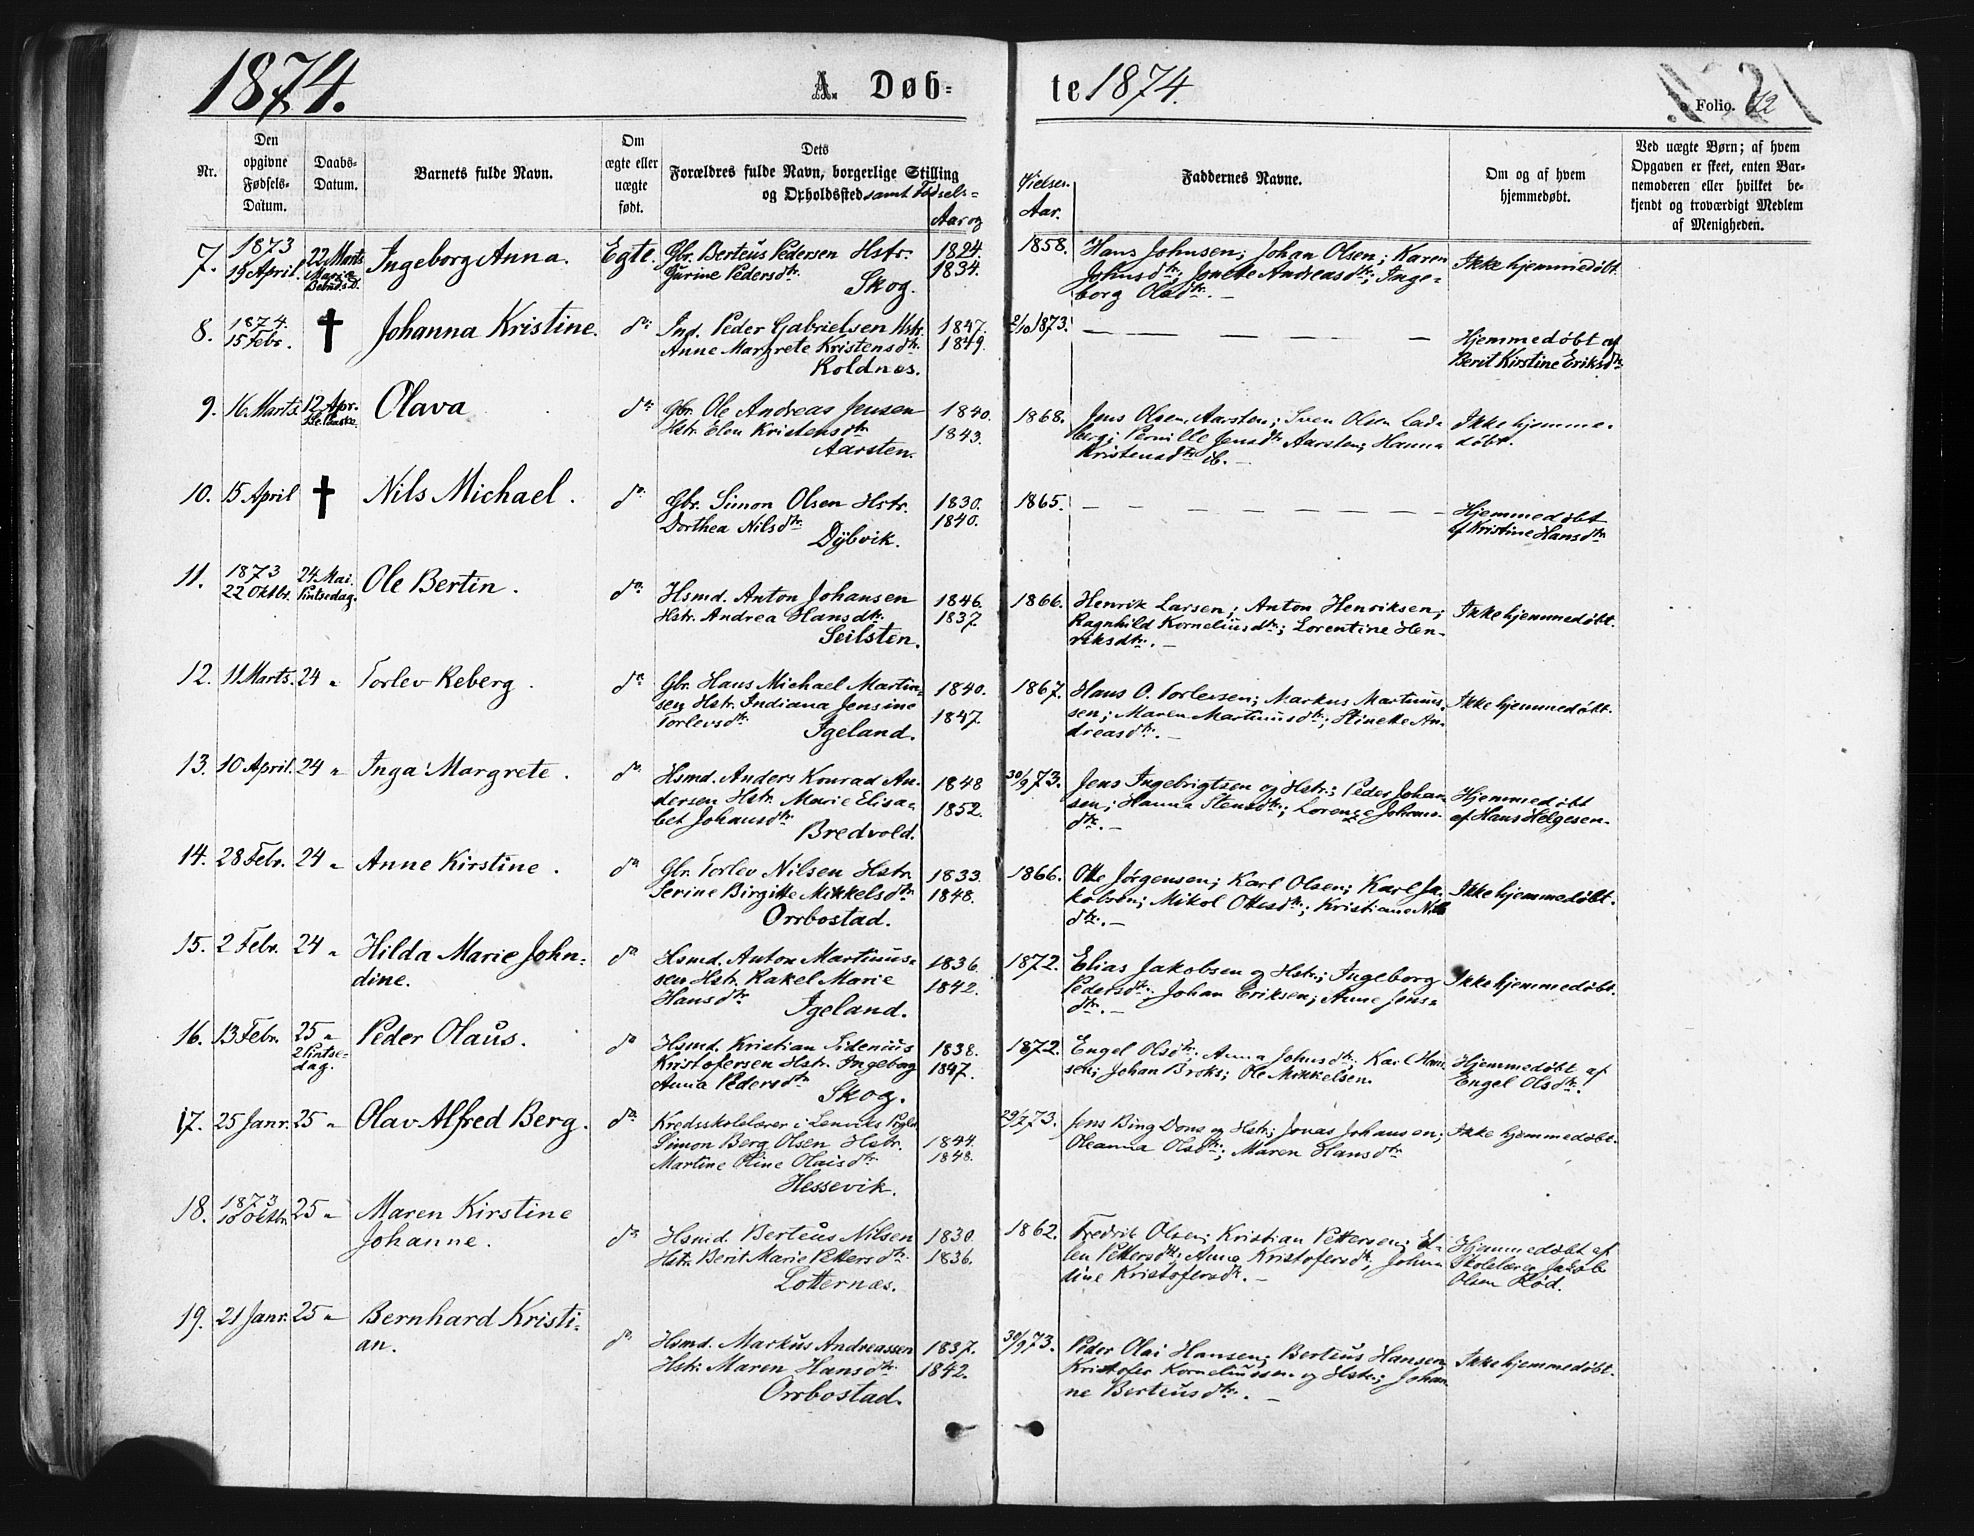 1874. A. Døb=
te 1874. a Folio. 12
Nr.
Den
opgivne
Fødsels-
Datum.
Daabs-
Datum.
Barnets fulde Navn.
Om
ægte eller
uægte
født.
Dets
Forældres fulde Navn, borgerlige Stilling
og Opholdssted samt Fødsels=
Aar og
Vielses-
Aar.
Faddernes Navne.
Om og af hvem
hjemmedøbt.
Ved uægte Børn; af hvem
Opgaven er skeet, enten Bar-
nemoderen eller hvilket be-
kjendt og troværdigt Medlem
af Menigheden.
7. 1873 19 April. 22 Marts Maria Bebud.d. Ingeborg Anna. Egte. Gbr. Berteus Pedersen Hstr. 1824. 1858. Hans Johnsen; Johan Olsen; Karen Ikke hjemmedøbt.
Gurine Pedersdtr. 1834. Johnsdtr; Andreasdtr; Inge=
Skog. borg Olsdtr. —
8. 1874. 15 Febr. † Johanna Kristine. do Ind. Peder Gabrielsen Hstr. 1847. 2/10 1873. — — — — — Hjemmedøbt af
Anne Margrete Kristensdtr. 1849. Berit Kirstine Eriksdtr
Koldnæs.
9. 16 Marts. 12 Apr. Olava do Gbr. Ole Andreas Jensen 1840. 1868. Jens Olsen, Aarsten; Sven Olsen Lad= Ikke hjemme=
Hstr. Elen Kristensdtr 1843. berg; Pernille Jensdtr Aarsten; Hanna døbt.
Aarsten. Kristensdtr ib. —
10. 15 April † Nils Michael. do Gbr. Simon Olsen Hstr. 1830. 1865. — — — — — — Hjemmedøbt
Dorthea Nilsdtr 1840. af Kristine Hansdtr
Dybvik.
11. 1873 22 Oktbr. 24 Mai. Pintsedag. Ole Bertin. do Hsmd. Anton Johansen 1846. 1866. Henrik Larsen; Anton Henriksen; Ikke hjemmedøbt.
Hstr. Andrea Hansdtr. 1837. Ragnhild Korneliusdtr; Lorentine Hen=
Seilsten. riksdtr. —
12. 11 Marts. 24 " Torlev Reberg. do Gbr. Hans Michael Martin= 1840. 1867. Hans O. Torlevsen; Markus Martinus= Ikke hjemmedøbt.
sen Hstr. Indiana Jensine sen; Maren Martinusdtr; Stineke An=
Torlevsdtr 1847. dreasdtr. —
Igeland.
13. 10 April. 24 " Inga Margrete. do Hsmd. Anders Konrad An= 1848 30/9 73. Jens Ingebrigtsen og Hstr.; Peder Johan= Hjemmedøbt
dersen Hstr. Marie Elisa= 1852. sen; Hanna Stensdtr.; Lorenze Johans= af Hans Helgesen.
bet Johansdtr dtr. —
Bredvold.
14. 28 Febr. 24 " Anne Kirstine. do Gbr. Torlev Nilsen Hstr. 1833. 1866. Otte Jørgensen; Karl Olsen; Karl Ja= Ikke hjemmedøbt.
Serine Birgitte Mikkelsdtr 1848. kobsen; Mikol Ottesdtr.; Kristiane Nils
Orrbostad. dtr. —
15. 2 Febr. 24 " Hilda Marie John= do Hsmd. Anton Martinus= 1836. 1872. Elias Jakobsen og Hstr.; Ingeborg Ikke hjemmedøbt.
dine. sen Hstr. Rakel Marie 1842. Pedersdtr. Johan Eriksen; Anne Jens=
Hansdtr dtr. —
Igeland.
16. 13 Febr. 25 " 2 Pintse- dag. Peder Olaus. do Hsmd. Kristian Sidenius 1838. 1872. Engel Olsdtr; Anna Johnsdtr; Karl Han= Hjemmedøbt af
Kristofersen Hstr. Ingeborg 1847. sen; Johan Broks; Ole Mikkelsen. Engel Olsdtr.
Anna Pedersdtr
Skog.
17. 25 Janr. 25 " Olav Alfred Berg. do Kredsskolelærer i Lenviks Prgld 29/7 73. Jens Bing Dons og Hstr; Jonas Johansen; Ikke hjemmedøbt.
Simon Berg Olsen Hstr. 1844. Oleanna Olsdtr.; Maren Hansdtr
Martine Oline Olaisdtr 1848.
Hessevik.
18. 1873 10 Oktbr. 25 " Maren Kirstine
Johanne. do Hsmd. Berteus Nilsen 1830. 1862. Fredrik Olsen; Kristian Pettersen; El= Hjemmedøbt af
Hstr. Berit Marie Pettersdtr 1836. len Pettersdtr; Anna Kristofersdtr, Johan= Skolelærer Jakob
Lotternæs. dine Kristofersdtr. — Olsen Rød.
19. 21 Janr. 25 " Bernhard Kristi=
an. do Hsmd. Markus Andreassen 1837. 30/9 73. Peder Olai Hansen; Berteus Hansen Ikke hjemmedøbt.
Hstr. Maren Hansdtr. 1842. Kristofer Korneliussen og Hstr.; Johan=
Orrbostad. ne Berteusdtr. —